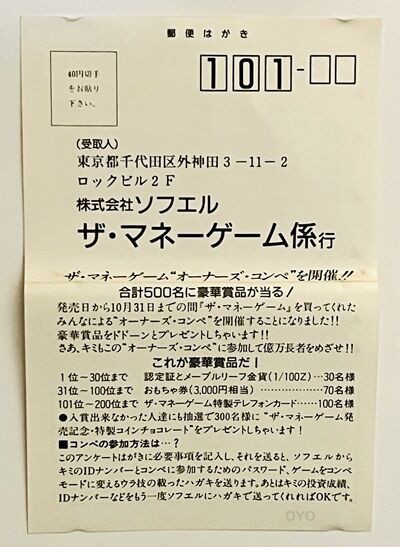 郵便はがき
40円切手
をお貼り
下さい。
101-□□
(受取人)
東京都千代田区外神田3-11-2
ロックビル2F
株式会社ソフエル
ザ・マネーゲーム係行
ザ・マネーゲーム“オーナーズ・コンペ”を開催!!
合計500名に豪華賞品が当る!
発売日から10月31日までの間『ザ・マネーゲーム』を買ってくれた
みんなによる“オーナーズ・コンペ”を開催することになりました!!
豪華賞品をドドーンとプレゼントしちゃいます!!
さあ、キミもこの“オーナーズ・コンペ”に参加して億万長者をめざせ!!
これが豪華賞品だ!
1位〜30位まで 認定証とメープルリーフ金貨(1/10OZ)…30名様
31位〜100位まで おもちゃ券(3,000円相当)………………70名様
101位〜200位まで ザ・マネーゲーム特製テレフォンカード……100名様
●入賞出来なかった人達にも抽選で300名様に“ザ・マネーゲーム発
売記念・特製コインチョコレート”をプレゼントしちゃいます!
■コンペの参加方法は…?
このアンケートはがきに必要事項を記入し、それを送ると、ソフエルから
キミのIDナンバーとコンペに参加するためのパスワード、ゲームをコンペ
モードに変えるウラ技の載ったハガキを送ります。あとはキミの投資成績、
IDナンバーなどをもう一度ソフエルにハガキで送ってくれればOKです。
OYO